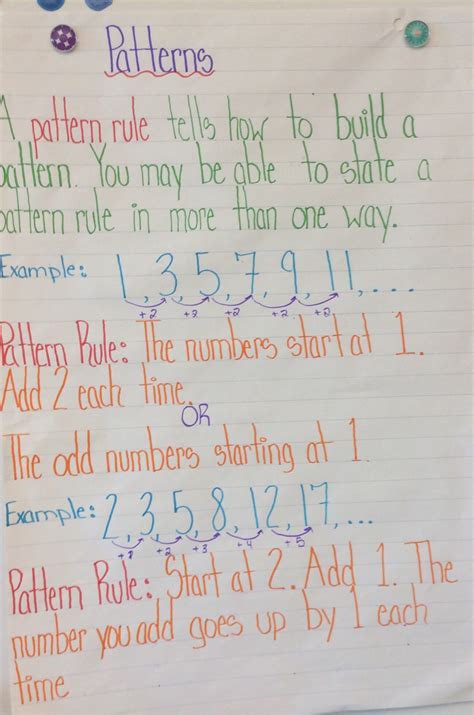 Patterns
A pattern rule tells how to build a
pattern. You may be able to state a
pattern rule in more than one way.
Example: 1, 3, 5, 7, 9, 11, ...
+2 +2 +2 +2 +2
Pattern Rule: The numbers start at 1.
Add 2 each time.
OR
The odd numbers starting at 1.
Example: 2, 3, 5, 8, 12, 17, ...
+1 +2 +3 +4 +5
Pattern Rule: Start at 2. Add 1. The
number you add goes up by 1 each
time